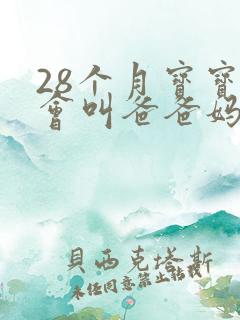 28个月宝宝
會叫爸爸妈
貝西克塔斯
未经同意禁止转载